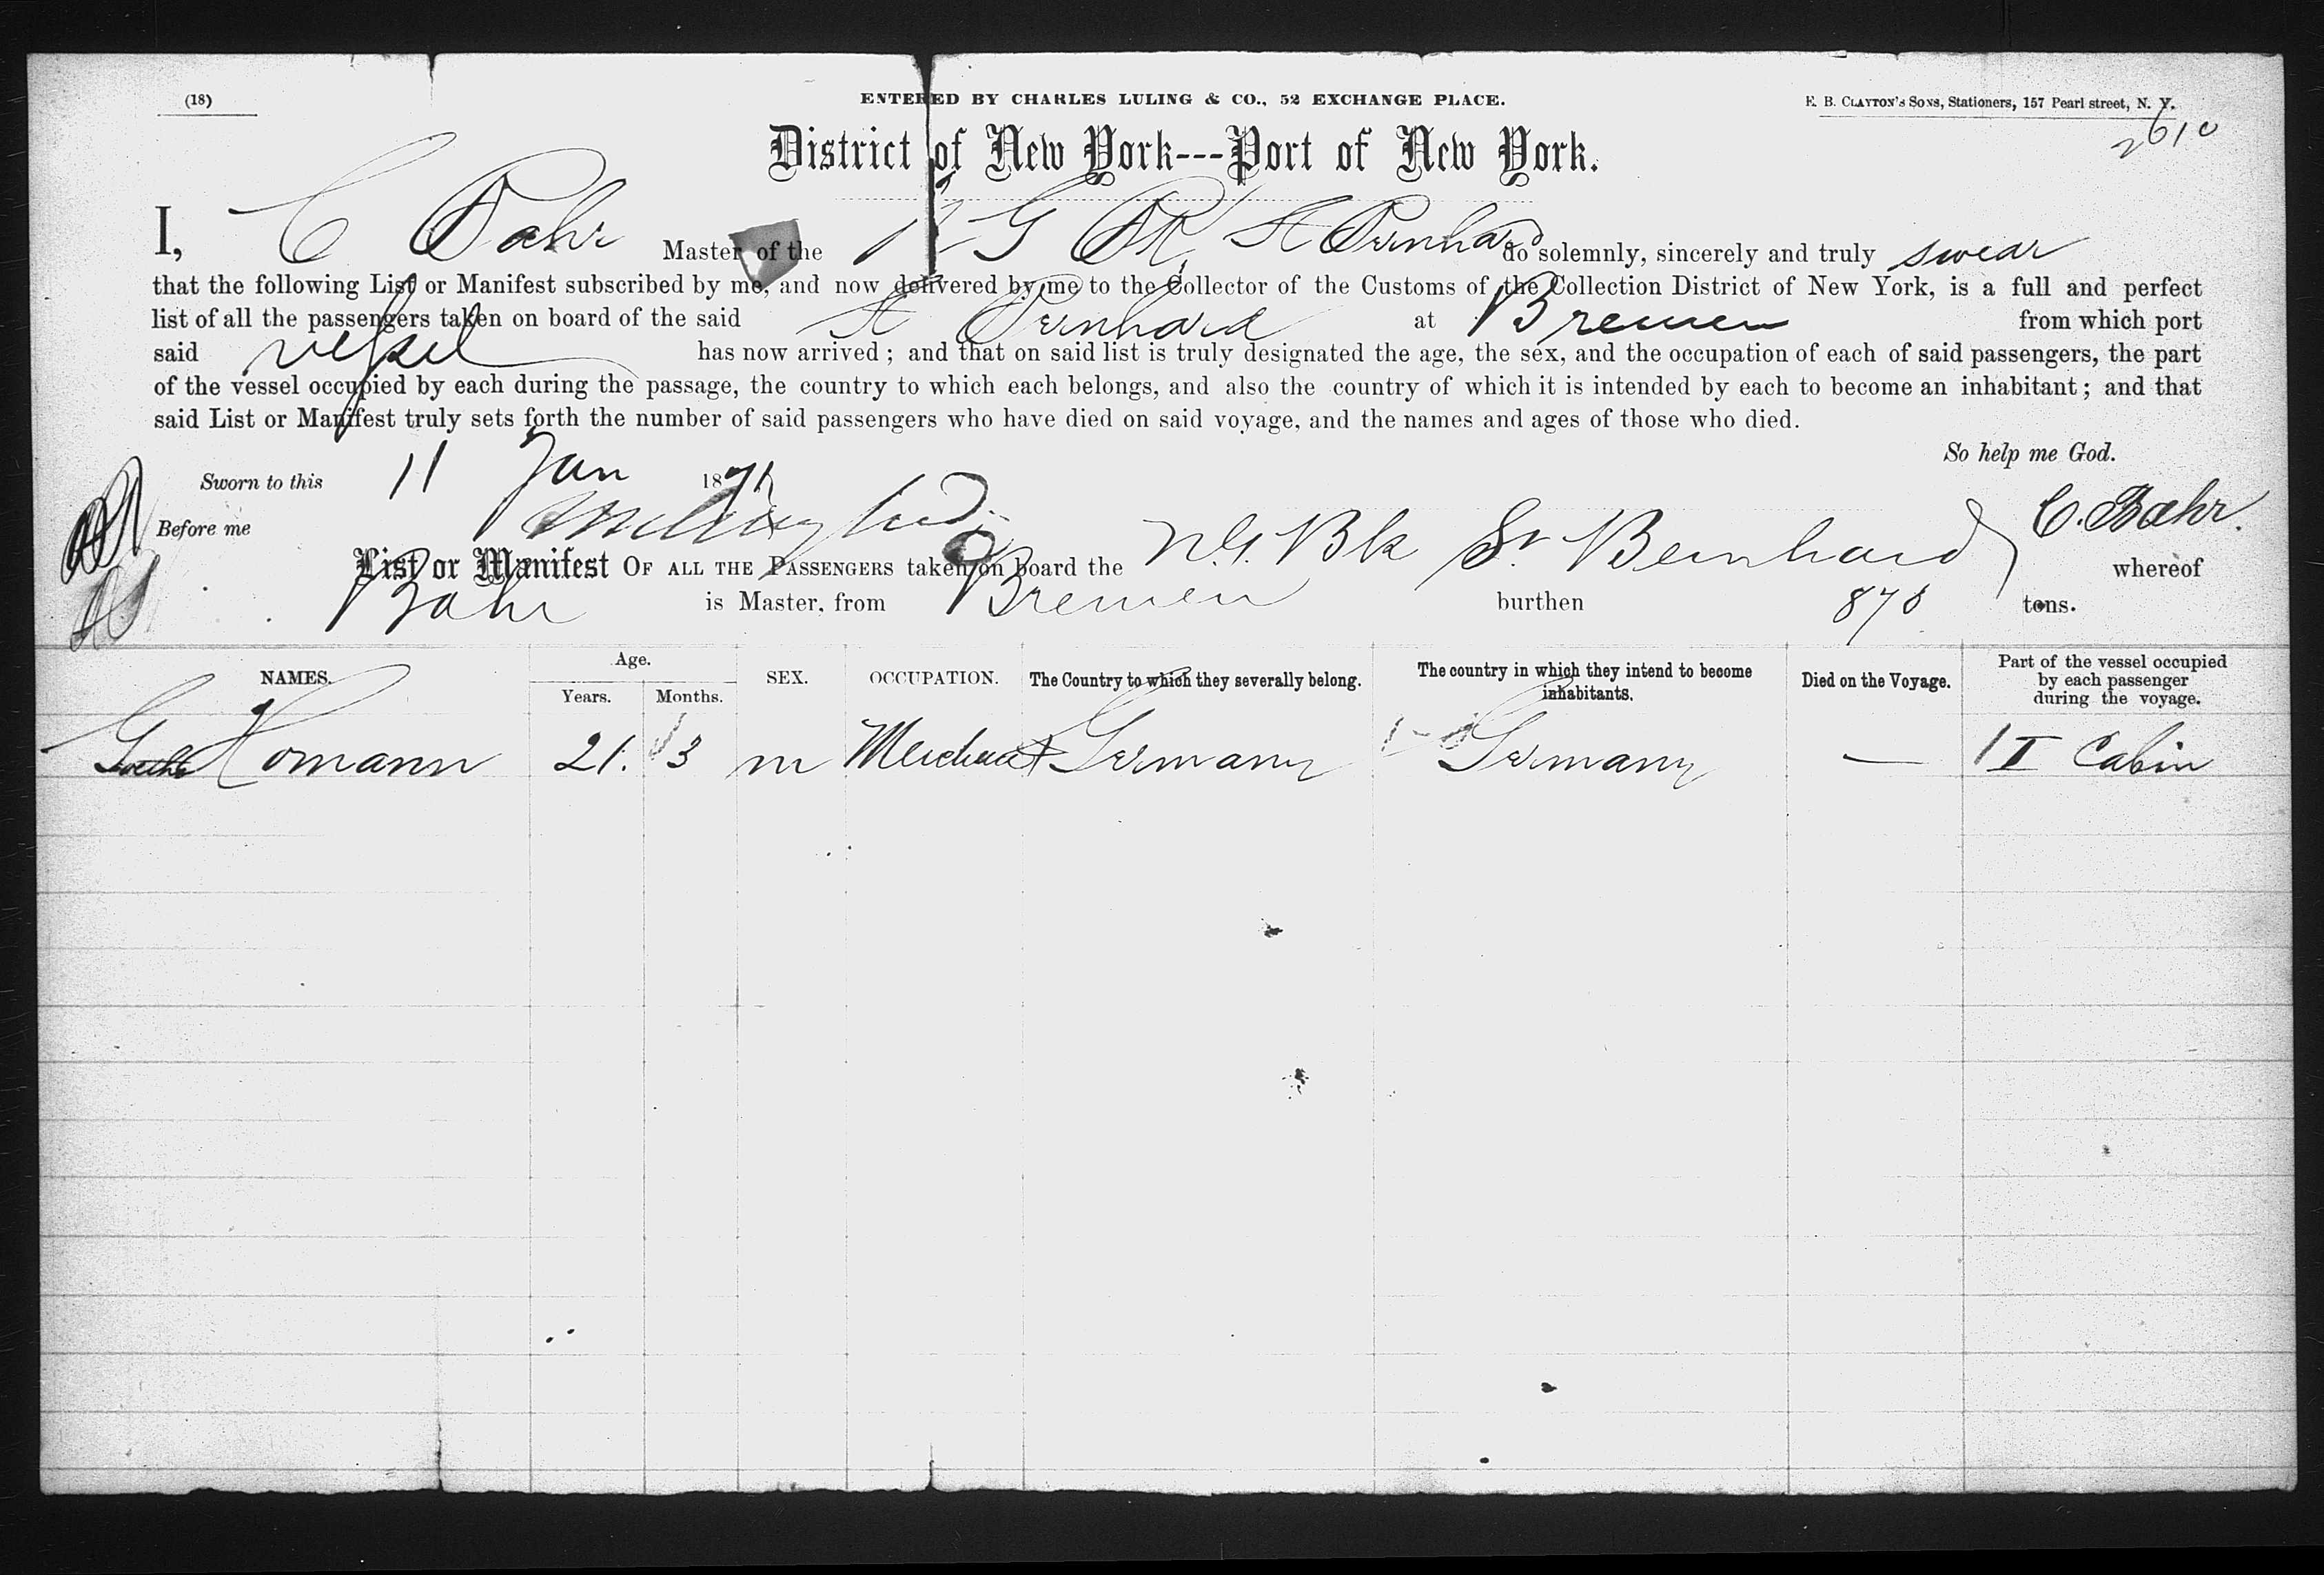 (18)
ENTERED BY CHARLES LULING & CO., 52 EXCHANGE PLACE.
E. B. CLAYTON'S SONS, Stationers, 157 Pearl street, N. Y.
2610
District of New York---Port of New York.
I, C Bahr Master of the N G Bk St Bernhard do solemnly, sincerely and truly swear
that the following List or Manifest subscribed by me, and now delivered by me to the Collector of the Customs of the Collection District of New York, is a full and perfect
list of all the passengers taken on board of the said St Bernhard at Bremen from which port
said vessel has now arrived; and that on said list is truly designated the age, the sex, and the occupation of each of said passengers, the part
of the vessel occupied by each during the passage, the country to which each belongs, and also the country of which it is intended by each to become an inhabitant; and that
said List or Manifest truly sets forth the number of said passengers who have died on said voyage, and the names and ages of those who died.
So help me God.
Sworn to this 11 Jan 1871
Before me C. Bahr.
List or Manifest OF ALL THE PASSENGERS taken on board the N.G. Bk St Bernhard whereof
Bahr is Master, from Bremen burthen 878 tons.
NAMES. Age. Years. Months. SEX. OCCUPATION. The Country to which they severally belong. The country in which they intend to become inhabitants. Died on the Voyage. Part of the vessel occupied by each passenger during the voyage.
Homann 21. 3 m Merchant Germany Germany — II Cabin